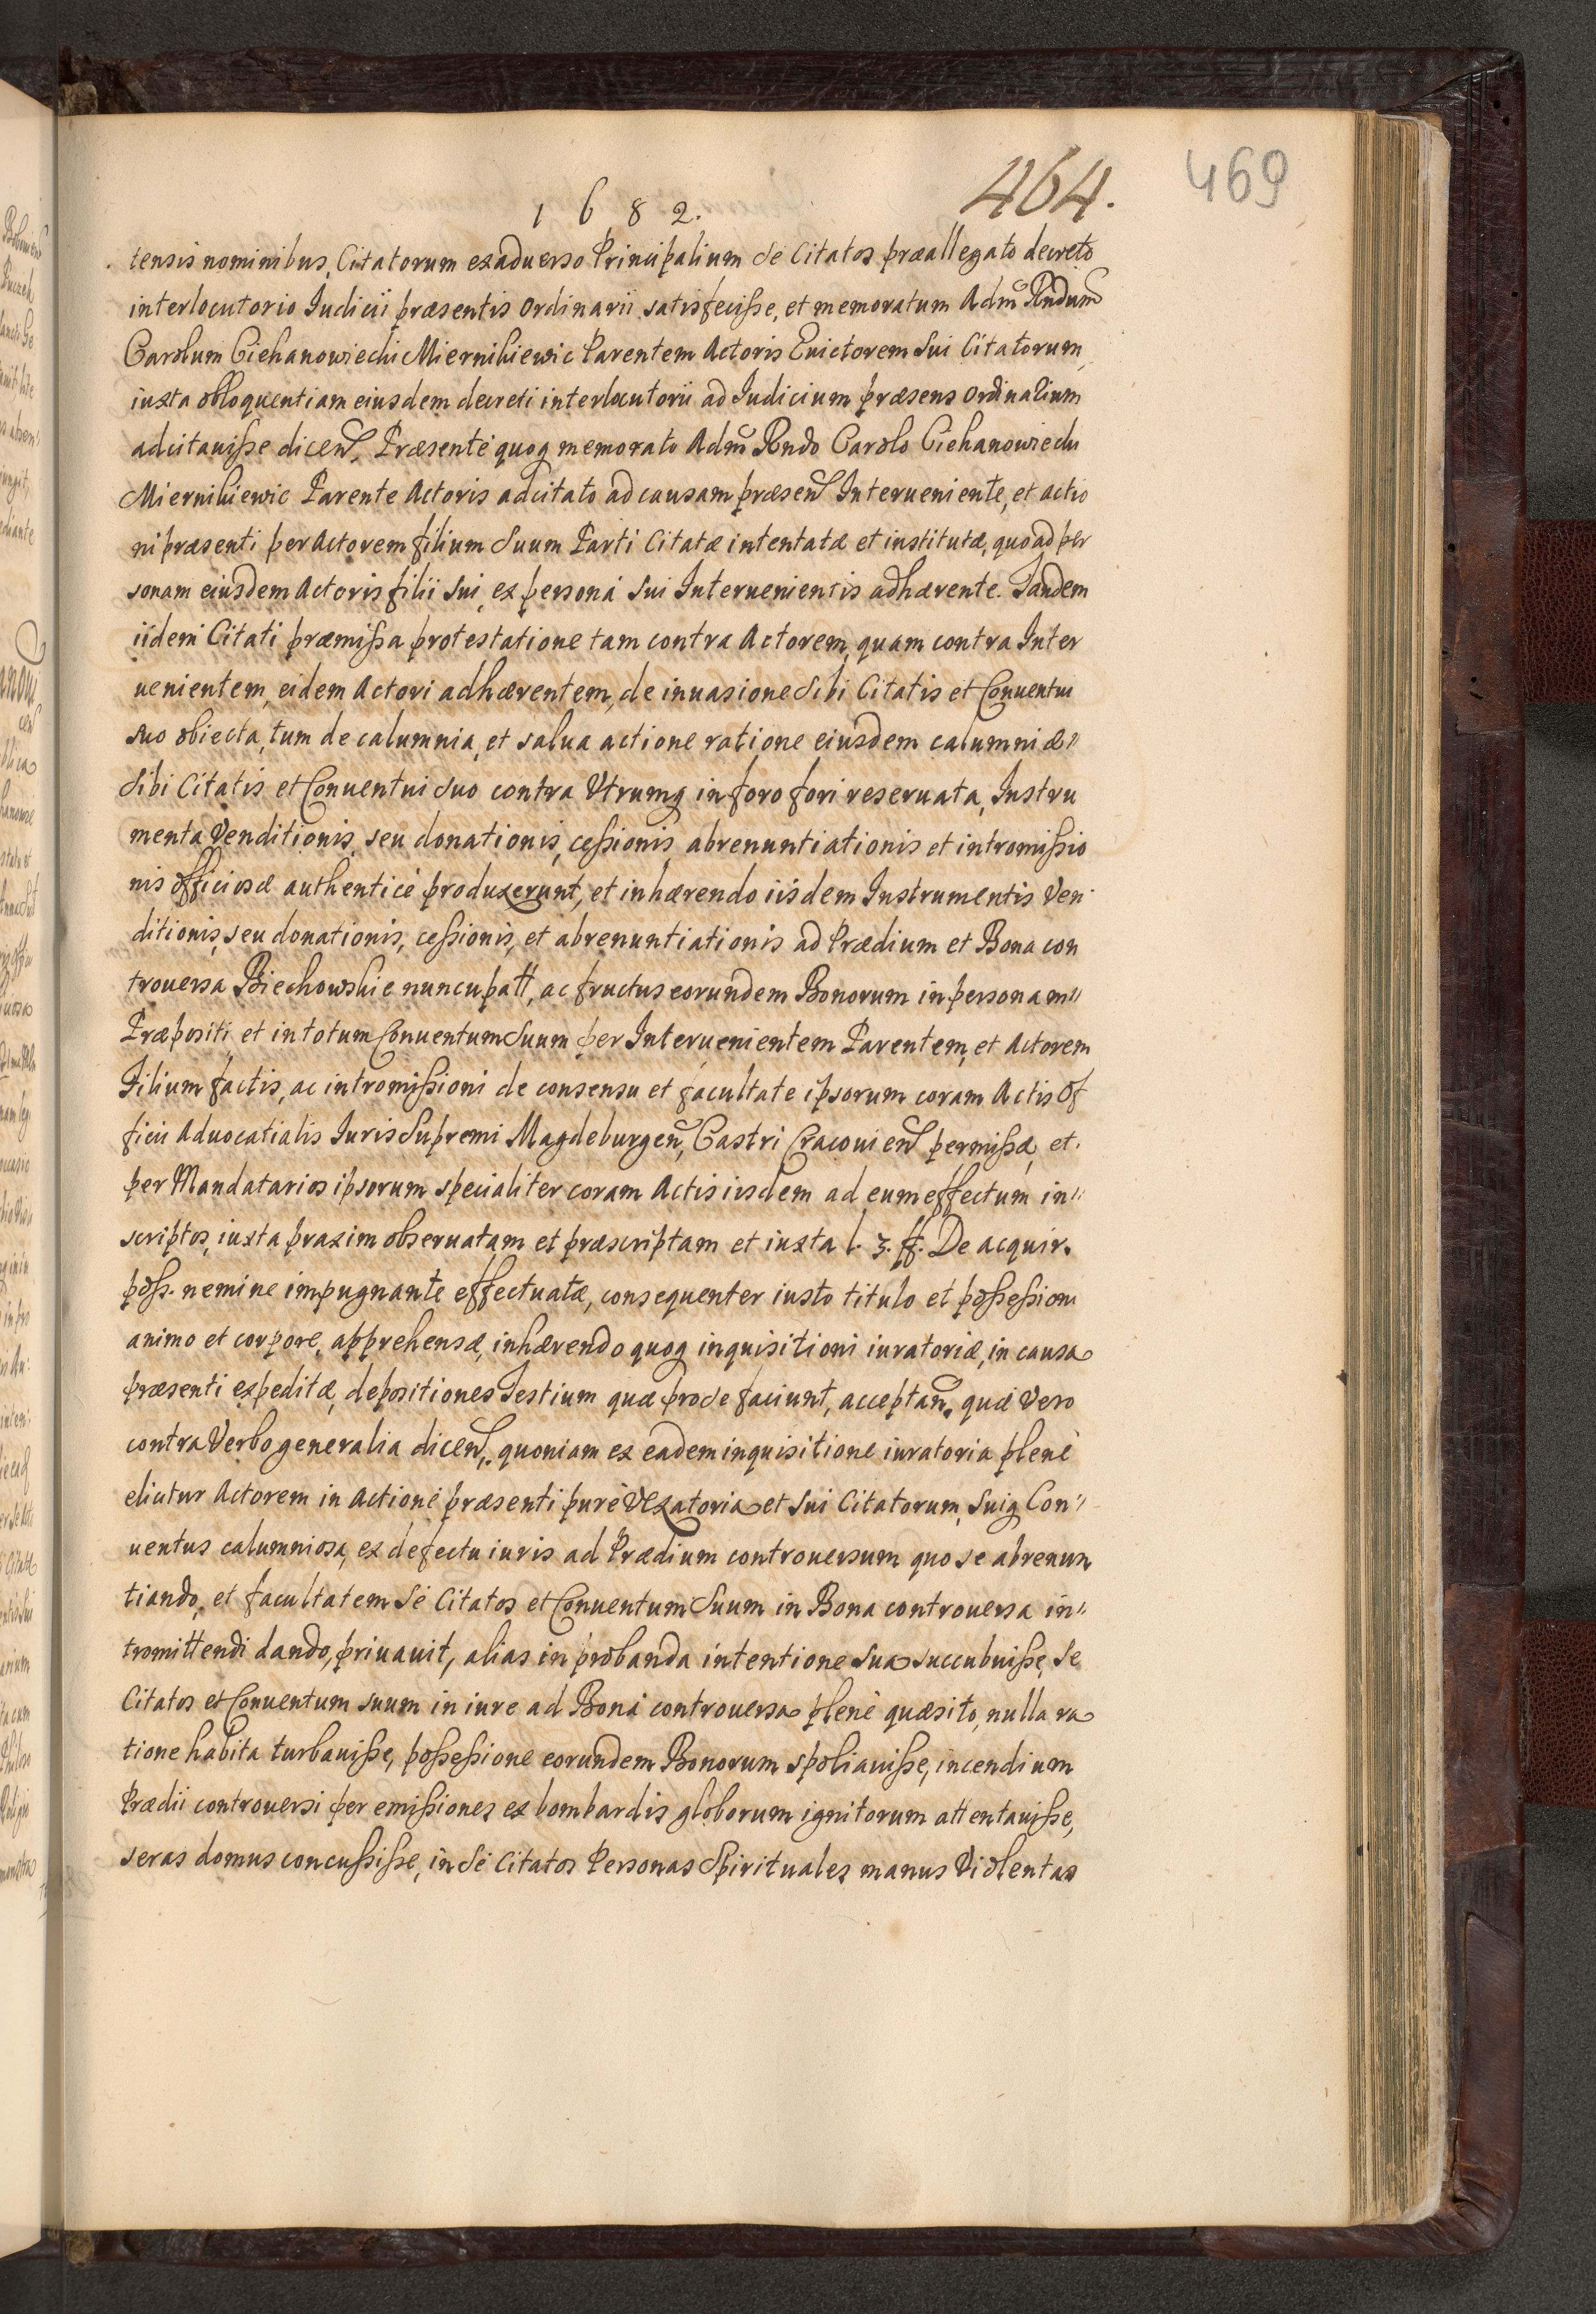 464.
469
1682.
tensis nominibus, Citatorum ex aduerso Principalium se Citatos præallegato decreto
interlocutorio Iudicii præsentis ordinarii satisfecisse, et memoratum Adm̃ Rndum
Carolum Ciehanowiecki Miernikiewic Parentem Actoris Euictorem sui Citatorum,
iuxta obloquentiam eiusdem decreti interlocutorii ad Iudicium præsens ordinarium
adcitauisse dicen̄. Præsente quoq memorato Adm̃ Rndo Carolo Ciehanowiecki
Miernikiewic Parente Actoris adcitato ad causam præsen̄ Interueniente, et actio
ni præsenti per Actorem filium suum Parti Citatæ intentatæ et institutæ, quoad per
sonam eiusdem Actoris filii sui, ex persona sui Interuenientis adhærente. Tandem
iidem Citati præmissa protestatione tam contra Actorem, quam contra Inter
uenientem, eidem Actori adhærentem, de inuasione sibi Citatis et Conuentui
suo obiecta, tum de calumnia, et salua actione ratione eiusdem calumniæ"
sibi Citatis et Conuentui suo contra Vtrumq in foro fori reseruata, Instru
menta Venditionis, seu donationis, cessionis, abrenuntiationis et intromissio
nis officiosæ authenticè produxerunt, et inhærendo iisdem Instrumentis Ven
ditionis, seu donationis, cessionis, et abrenuntiationis ad Prædium et Bona con
trouersa Biechowskie nuncupatt, ac fructus eorundem Bonorum in personam"
Præpositi et in totum Conuentum suum per Interuenientem Parentem, et Actorem
Filium factis, ac intromissioni de consensu et facultate ipsorum coram Actis Of
ficii Aduocatialis Iuris Supremi Magdeburgen̄, Castri Cracouien̄ permissæ, et
per Mandatarios ipsorum specialiter coram Actis iisdem ad eum effectum in"
scriptos, iuxta praxim obseruatam et præscriptam et iuxta l. 3. ff. De acquir.
poss. nemine impugnante effectuatæ, consequenter iusto titulo et possessioni
animo et corpore, apprehensæ, inhærendo quoq inquisitioni iuratoriæ, in causa
præsenti expeditæ, depositiones Testium quæ pro se faciunt, acceptan̄. quæ Vero
contra Verbo generalia dicen̄. quoniam ex eadem inquisitione iuratoria plenè
elicitur Actorem in Actione præsenti purè Vexatoria et sui Citatorum, suiq Con"
uentus calumniosa, ex defectu iuris ad Prædium controuersum quo se abrenun
tiando, et facultatem se Citatos et Conuentum suum in Bona controuersa in"
tromittendi dando, priuauit, alias in probanda intentione sua succubuisse, se
Citatos et Conuentum suum in iure ad Bona controuersa plenè quæsito, nulla ra
tione habita turbauisse, possessione eorundem Bonorum spoliauisse, incendium
Prædii controuersi per emissiones ex bombardis globorum ignitorum attentauisse,
seras domus concussisse, in se Citatos Personas Spirituales manus Violentas